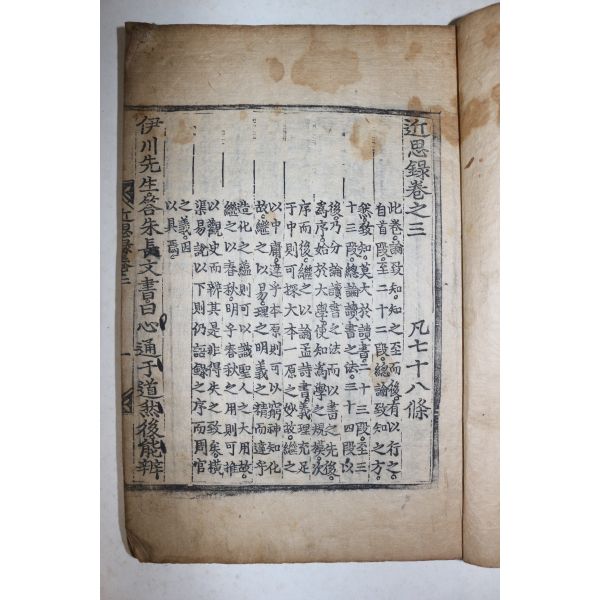 近思錄卷之三 凡七十八條
此卷論致知知之至而後有以行之
自首段至二十二段總論致知之方
然致知莫大於讀書二十三段至三
十三段總論讀書之法三十四段以
後乃分論讀書之法而以書之先後
爲序始於大學使知爲學之規模次
序而後繼之以論孟詩書義理充足
于中則可探大本一原之妙故繼之
以中庸達乎本原則可以窮神知化
故繼之以易理之明義之精而達乎
造化之蘊則可以識聖人之大用故
繼之以春秋明乎春秋之用則可推
以觀史而辨其是非得失之致矣橫
渠易說以下則仍語錄之序而周官
之義因
以具焉
伊川先生答朱長文書曰心通乎道然後能辨
近思錄卷三 一